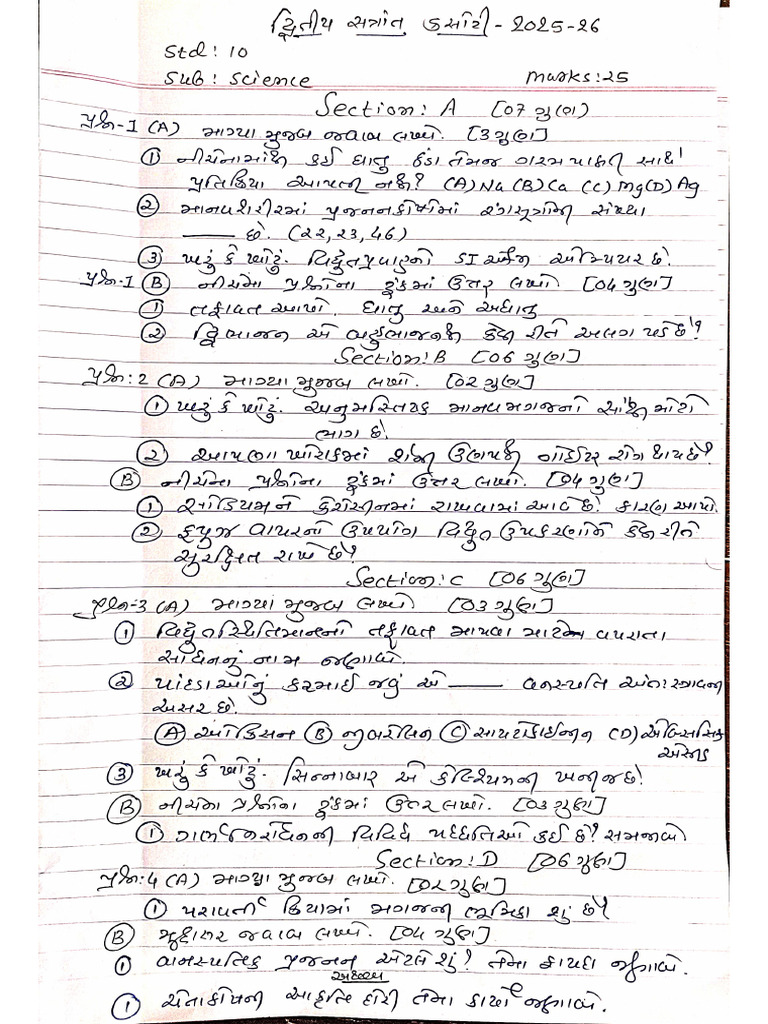 દ્વિતીય સત્રાંત કસોટી - 2025-26
Std: 10
Sub: Science Marks: 25
Section: A [07 ગુણ]
પ્રશ્ન-1 (A) માગ્યા મુજબ જવાબ લખો. [3 ગુણ]
① નીચેનામાંથી કઈ ધાતુ ઠંડા તેમજ ગરમ પાણી સાથે
પ્રતિક્રિયા આપતી નથી? (A) Na (B) Ca (C) Mg (D) Ag
② માનવશરીરમાં પ્રજનનકોષોમાં રંગસૂત્રોની સંખ્યા
____ છે. (22, 23, 46)
③ ખરું કે ખોટું. વિદ્યુતપ્રવાહનો SI એકમ એમ્પિયર છે.
પ્રશ્ન-1 (B) નીચેના પ્રશ્નોના ટૂંકમાં ઉત્તર લખો [04 ગુણ]
① તફાવત આપો. ધાતુ અને અધાતુ
② દ્વિભાજન એ બહુભાજનથી કેવી રીતે અલગ પડે છે?
Section: B [06 ગુણ]
પ્રશ્ન: 2 (A) માગ્યા મુજબ લખો. [02 ગુણ]
① ખરું કે ખોટું. અનુમસ્તિષ્ક માનવમગજનો સૌથી મોટો
ભાગ છે.
② આપણા ખોરાકમાં શેની ઉણપથી ગોઇટર રોગ થાય છે?
(B) નીચેના પ્રશ્નોના ટૂંકમાં ઉત્તર લખો. [04 ગુણ]
① સોડિયમને કેરોસીનમાં રાખવામાં આવે છે. કારણ આપો.
② ફ્યુઝ વાયરનો ઉપયોગ વિદ્યુત ઉપકરણોને કેવી રીતે
સુરક્ષિત રાખે છે?
Section: C [06 ગુણ]
પ્રશ્ન-3 (A) માગ્યા મુજબ લખો [03 ગુણ]
① વિદ્યુતસ્થિતિમાનનો તફાવત માપવા માટે વપરાતા
સાધનનું નામ જણાવો.
② પાંદડાઓનું કરમાઈ જવું એ ____ વનસ્પતિ અંતઃસ્ત્રાવની
અસર છે.
(A) ઓક્સિન (B) જીબરેલિન (C) સાયટોકાઈનીન (D) એબ્સિસિક
એસિડ
③ ખરું કે ખોટું. સિન્નાબાર એ કેલ્શિયમની ખનીજ છે.
(B) નીચેના પ્રશ્નોના ટૂંકમાં ઉત્તર લખો. [03 ગુણ]
① ગર્ભનિરોધનની વિવિધ પદ્ધતિઓ કઈ છે? સમજાવો
Section: D [06 ગુણ]
પ્રશ્ન: 4 (A) માગ્યા મુજબ લખો. [02 ગુણ]
① પરાવર્તી ક્રિયામાં મગજની ભૂમિકા શું છે?
(B) મુદ્દાસર જવાબ લખો. [04 ગુણ]
① વાનસ્પતિક પ્રજનન એટલે શું? તેના ફાયદા જણાવો.
અથવા
① ચેતાકોષની આકૃતિ દોરી તેના કાર્યો જણાવો.